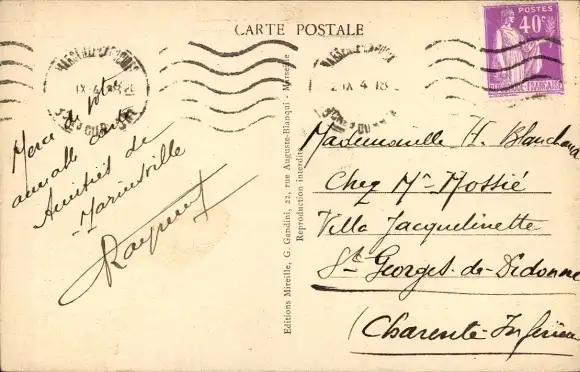 CARTE POSTALE
POSTES
40c
Merci de votre
aimable carte
Amitiés de
Raymond
Editions Mireille, G. Gandini, 22, rue Auguste-Blanqui - Marseille
Reproduction interdite
Mademoiselle H. Blancheval
Chez Mr Mossié
Villa Jacquelinette
St Georges-de-Didonne
(Charente-Inférieure